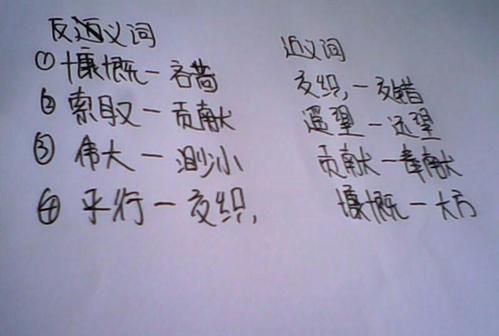 反义词
①慷慨－吝啬
②索取－贡献
③伟大－渺小
④平行－交织,
近义词
交织,－交错
遥望－远望
贡献－奉献
慷慨－大方